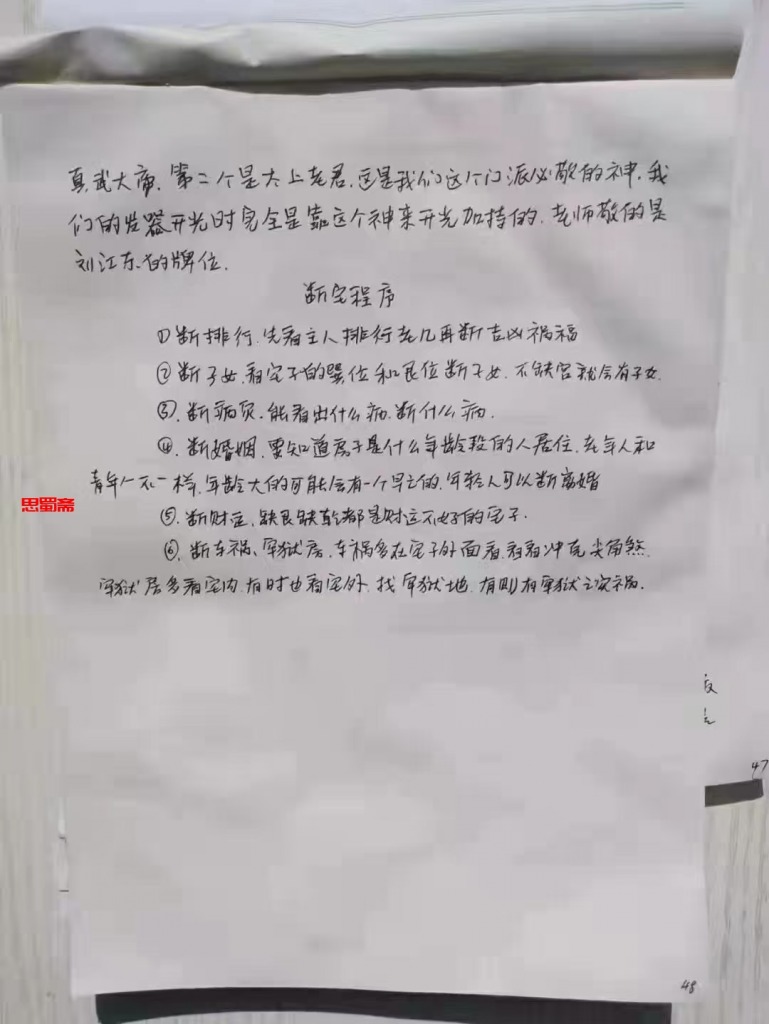 真武大帝.第二个是太上老君.这是我们这个门派必敬的神.我
们的发器开光时完全是靠这个神来开光加持的.老师敬的是
刘江东的牌位.
断宅程序
①断排行.先看主人排行老几再断吉凶祸福
②断子女.看宅子的巽位和艮位断子女.不缺宫就会有子女.
③.断病灾.能看出什么病.断什么病.
④.断婚姻.要知道房子是什么年龄段的人居住.老年人和
青年人不一样.年龄大的可能会有一个早亡的.年轻人可以断离婚
思蜀斋
⑤.断财运.缺艮缺乾都是财运不好的宅子.
⑥.断车祸、牢狱房.车祸多在宅子外面看.看看冲克尖角煞.
牢狱房多看宅内.有时也看宅外.找牢狱地.有则有牢狱之灾祸.
47
48